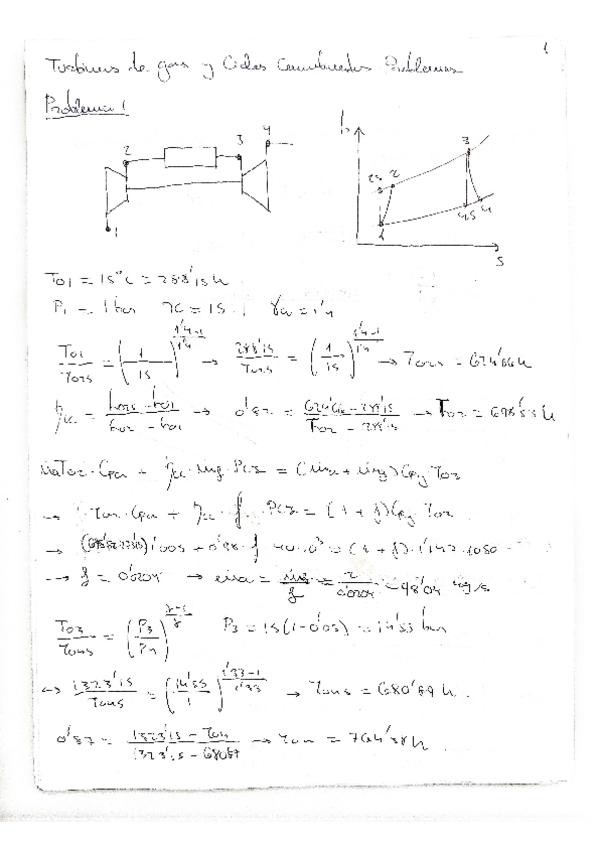 1
Turbinas de gas y Ciclos Combinados Problemas
Problema 1
2 3 4
1
h
3
2s 2
4s 4
1
s
T01 = 15°C = 288'15 K
P1 = 1 bar πc = 15 γa = 1'4
T01/T02s = (1/15)^(1'4-1/1'4) → 288'15/T02s = (1/15)^(1'4-1/1'4) → T02s = 624'66 K
ηc = h02s - h01 / h02 - h01 → 0'82 = 624'66 - 288'15 / T02 - 288'15 → T02 = 698'53 K
ṁa T02 · Cpa + ηcc · ṁg · PCI = (ṁa + ṁg) Cpg T03
→ T02 · Cpa + ηcc · f · PCI = (1 + f) Cpg T03
→ 1'005 + 0'98 · f = (1 + f) · 1'147 · 1050
→ f = 0'0204 → ṁa = ṁg/f = 2/0'0204 = 98'04 kg/s
T03/T04s = (P3/P4)^(γ-1/γ) P3 = 15(1-0'03) = 14'55 bar
→ 1323'15/T04s = (14'55/1)^(1'33-1/1'33) → T04s = 680'89 K
0'87 = 1323'15 - T04 / 1323'15 - 680'89 → T04 = 764'38 K